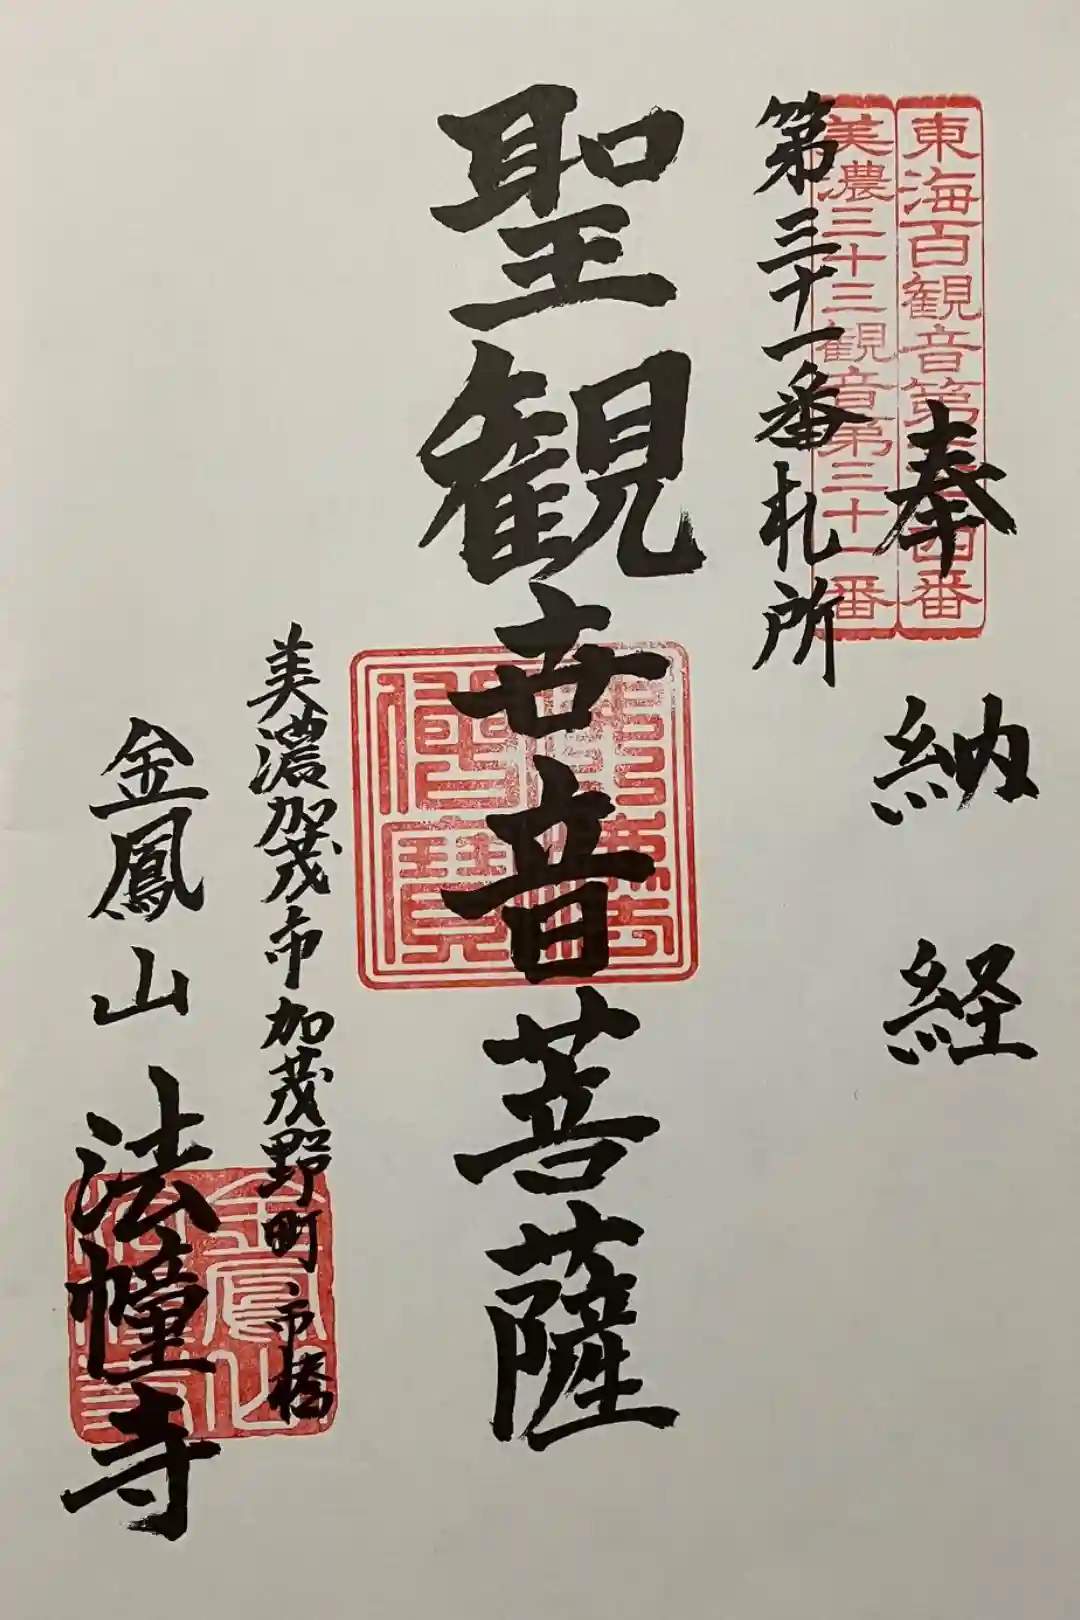 奉納経
東海百観音第四番
美濃三十三観音第三十一番
第三十一番札所
聖観世音菩薩
美濃加茂市加茂野町市橋
金鳳山法幢寺
金鳳山
法幢寺